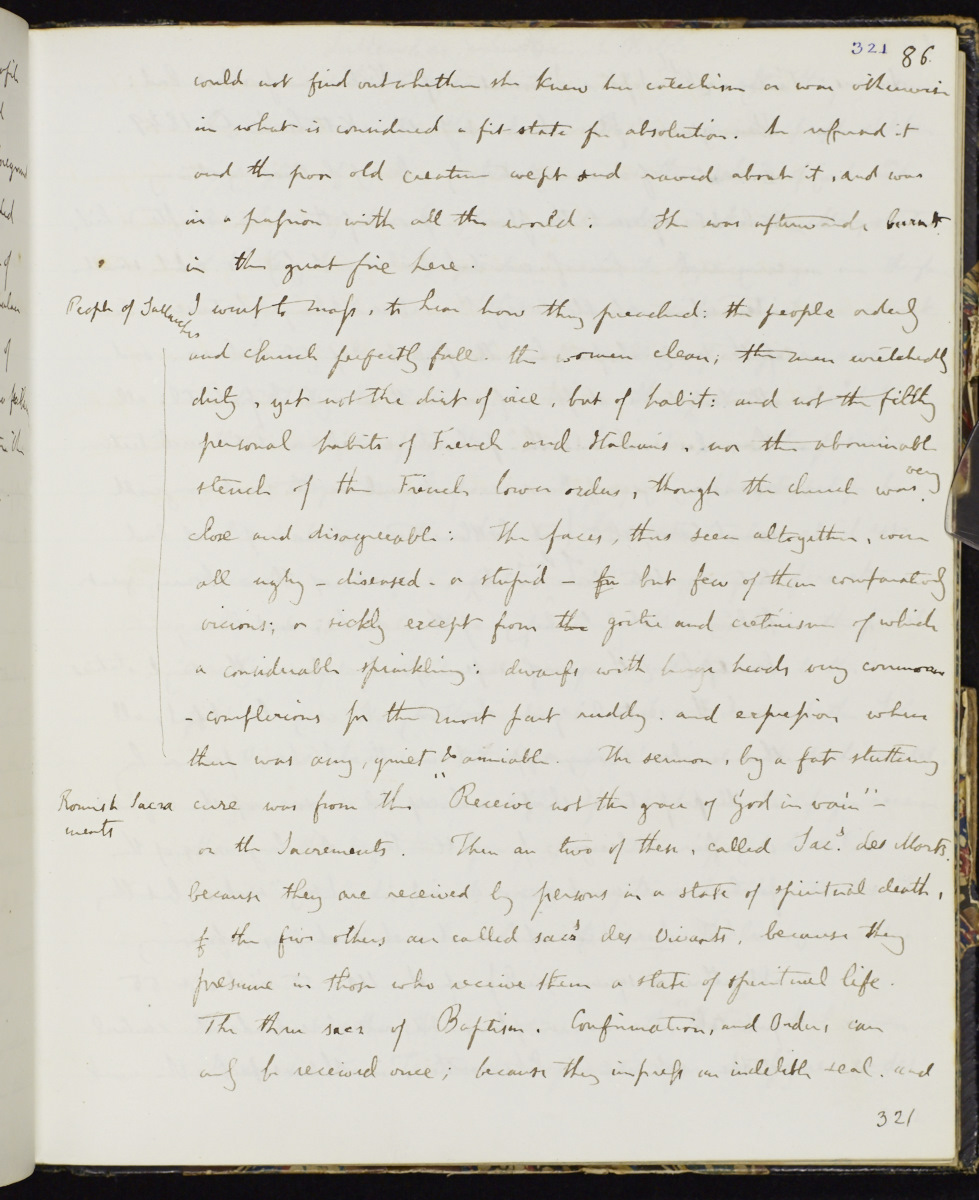 321 86.
could not find out whether she knew her catechism or was otherwise
in what is considered a fit state for absolution. He refused it
and the poor old creature wept and raved about it, and was
in a passion with all the world: She was afterwards burnt
in the great fire here.
People of Sallanches
I went to mass, to hear how they preached: the people orderly
and church perfectly full. the women clean; the men wretchedly
dirty, yet not the dirt of vice, but of habit: and not the filthy
personal habits of French and Italians, nor the abominable
stench of the French lower orders, though the church was very
close and disagreeable: The faces, thus seen altogether, were
all ugly - diseased - or stupid - for but few of them comparatively
vicious; or sickly except from the goitre and cretinism of which
a considerable sprinkling: dwarfs with large heads very common
- complexions for the most part ruddy. and expression where
there was any, quiet & amiable. The sermon, by a fat stuttering
Romish Sacra
ments
cure was from the "Receive not the grace of God in vain" -
on the Sacrements. There are two of these, called Sacs. des Morts.
because they are received by persons in a state of spiritual death,
& the five others are called sacs des Vivants, because they
presume in those who receive them a state of spiritual life.
The three sacs of Baptism. Confirmation, and Orders, can
only be received once; because they impress an indelible seal. and
321